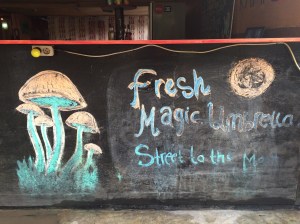 Fresh
Magic Umbrella
Street to the Moon